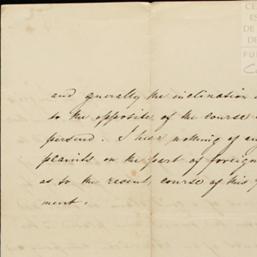 and generally the inclination
to the opposite of the course
pursued. I hear nothing of
plaints on the part of foreign
as to the recent, course of this
ment.
CE
DE
DE
FU
C